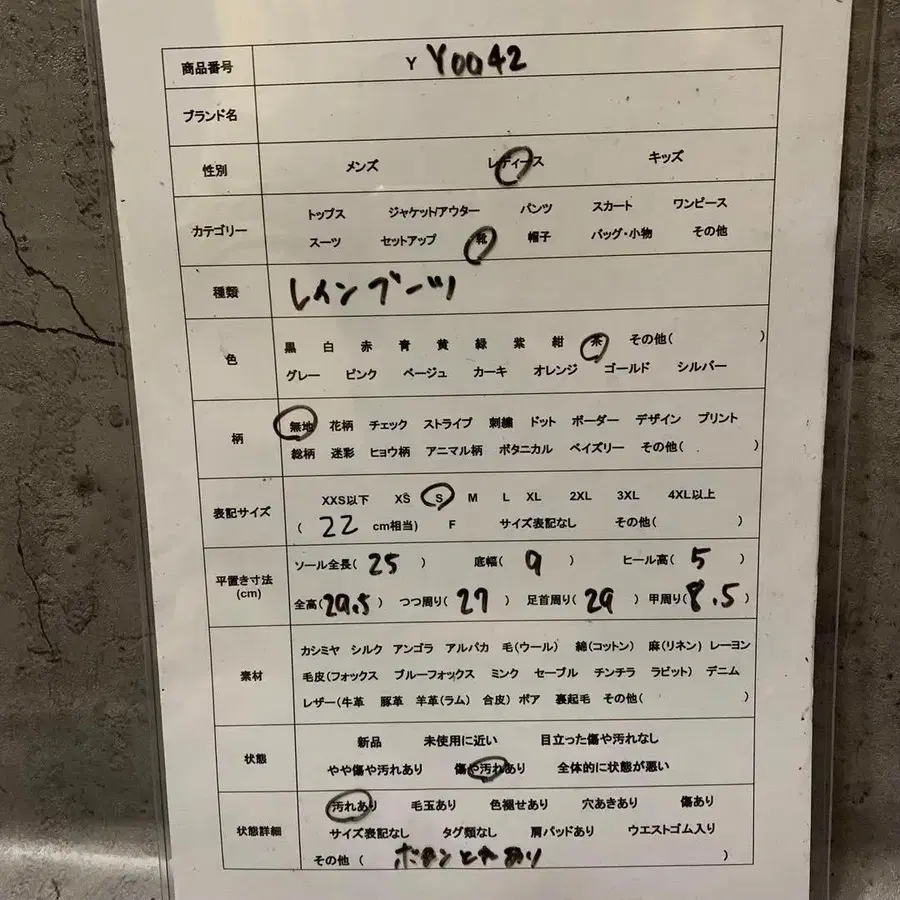 商品番号 Y Y0042
ブランド名
性別 メンズ レディース キッズ
カテゴリー
トップス ジャケット/アウター パンツ スカート ワンピース
スーツ セットアップ 靴 帽子 バッグ・小物 その他
種類 レインブーツ
色
黒 白 赤 青 黄 緑 紫 紺 茶 その他( )
グレー ピンク ベージュ カーキ オレンジ ゴールド シルバー
柄
無地 花柄 チェック ストライプ 刺繍 ドット ボーダー デザイン プリント
総柄 迷彩 ヒョウ柄 アニマル柄 ボタニカル ペイズリー その他( )
表記サイズ
XXS以下 XS S M L XL 2XL 3XL 4XL以上
( 22 cm相当) F サイズ表記なし その他( )
平置き寸法
(cm)
ソール全長( 25 ) 底幅( 9 ) ヒール高( 5 )
全高(29.5) つつ周り( 27 ) 足首周り( 29 ) 甲周り(8.5)
素材
カシミヤ シルク アンゴラ アルパカ 毛(ウール) 綿(コットン) 麻(リネン) レーヨン
毛皮(フォックス ブルーフォックス ミンク セーブル チンチラ ラビット) デニム
レザー(牛革 豚革 羊革(ラム) 合皮) ボア 裏起毛 その他( )
状態
新品 未使用に近い 目立った傷や汚れなし
やや傷や汚れあり 傷や汚れあり 全体的に状態が悪い
状態詳細
汚れあり 毛玉あり 色褪せあり 穴あきあり 傷あり
サイズ表記なし タグ類なし 肩パッドあり ウエストゴム入り
その他 ( ボタンとれあり )